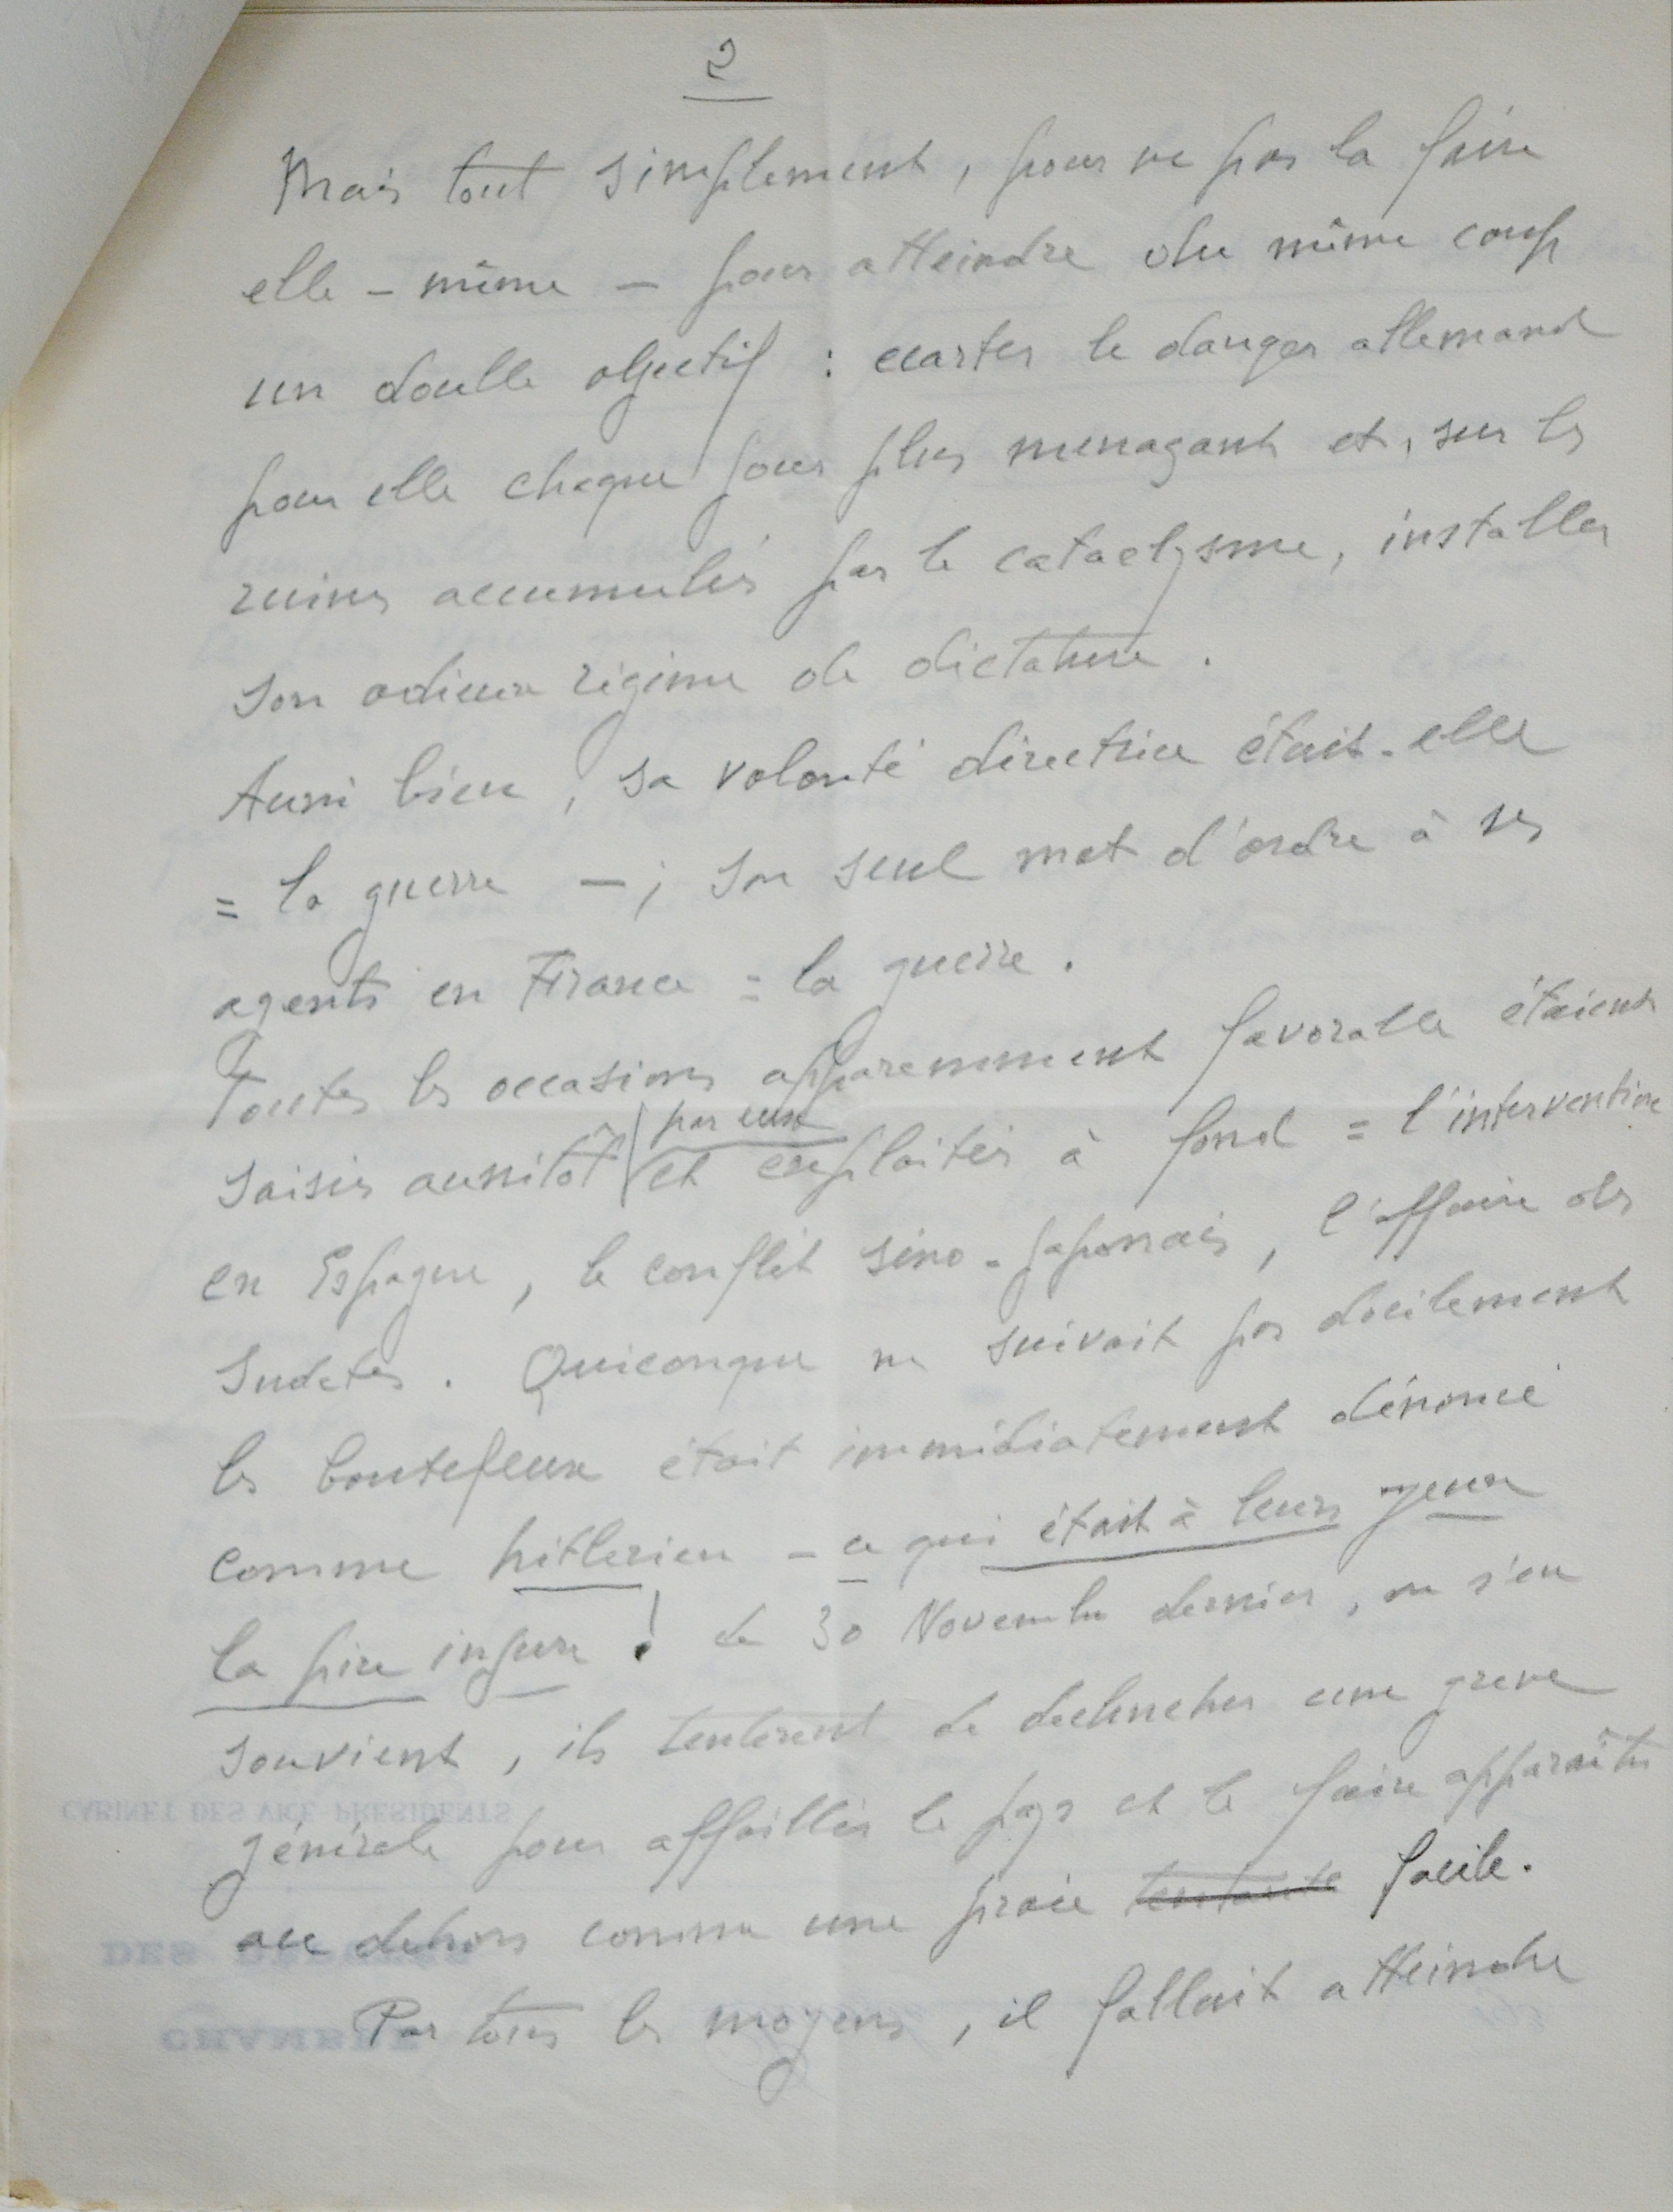 2
Mais tout simplement, pour ne pas la faire
elle-même – pour atteindre du même coup
un double objectif : écarter le danger allemand
pour elle chaque jour plus menaçant et, sur les
ruines accumulées par le cataclysme, installer
son odieux régime de dictature.
Aussi bien, sa volonté directrice était-elle
= la guerre – ; son seul mot d'ordre à ses
agents en France = la guerre.
Toutes les occasions apparemment favorables étaient
par eux
saisies aussitôt et exploitées à fond = l'intervention
en Espagne, le conflit sino-japonais, l'affaire des
Sudètes. Quiconque ne suivait pas docilement
les boutefeux était immédiatement dénoncé
comme hitlérien – ce qui était à leurs yeux
la pire injure ! Le 30 Novembre dernier, on s'en
souvient, ils tentèrent de déclencher une grève
générale pour affaiblir le pays et le faire apparaître
au dehors comme une proie tentante facile.
Par tous les moyens, il fallait atteindre
CABINET DES VICE-PRÉSIDENTS
DES DÉPUTÉS
CHAMBRE